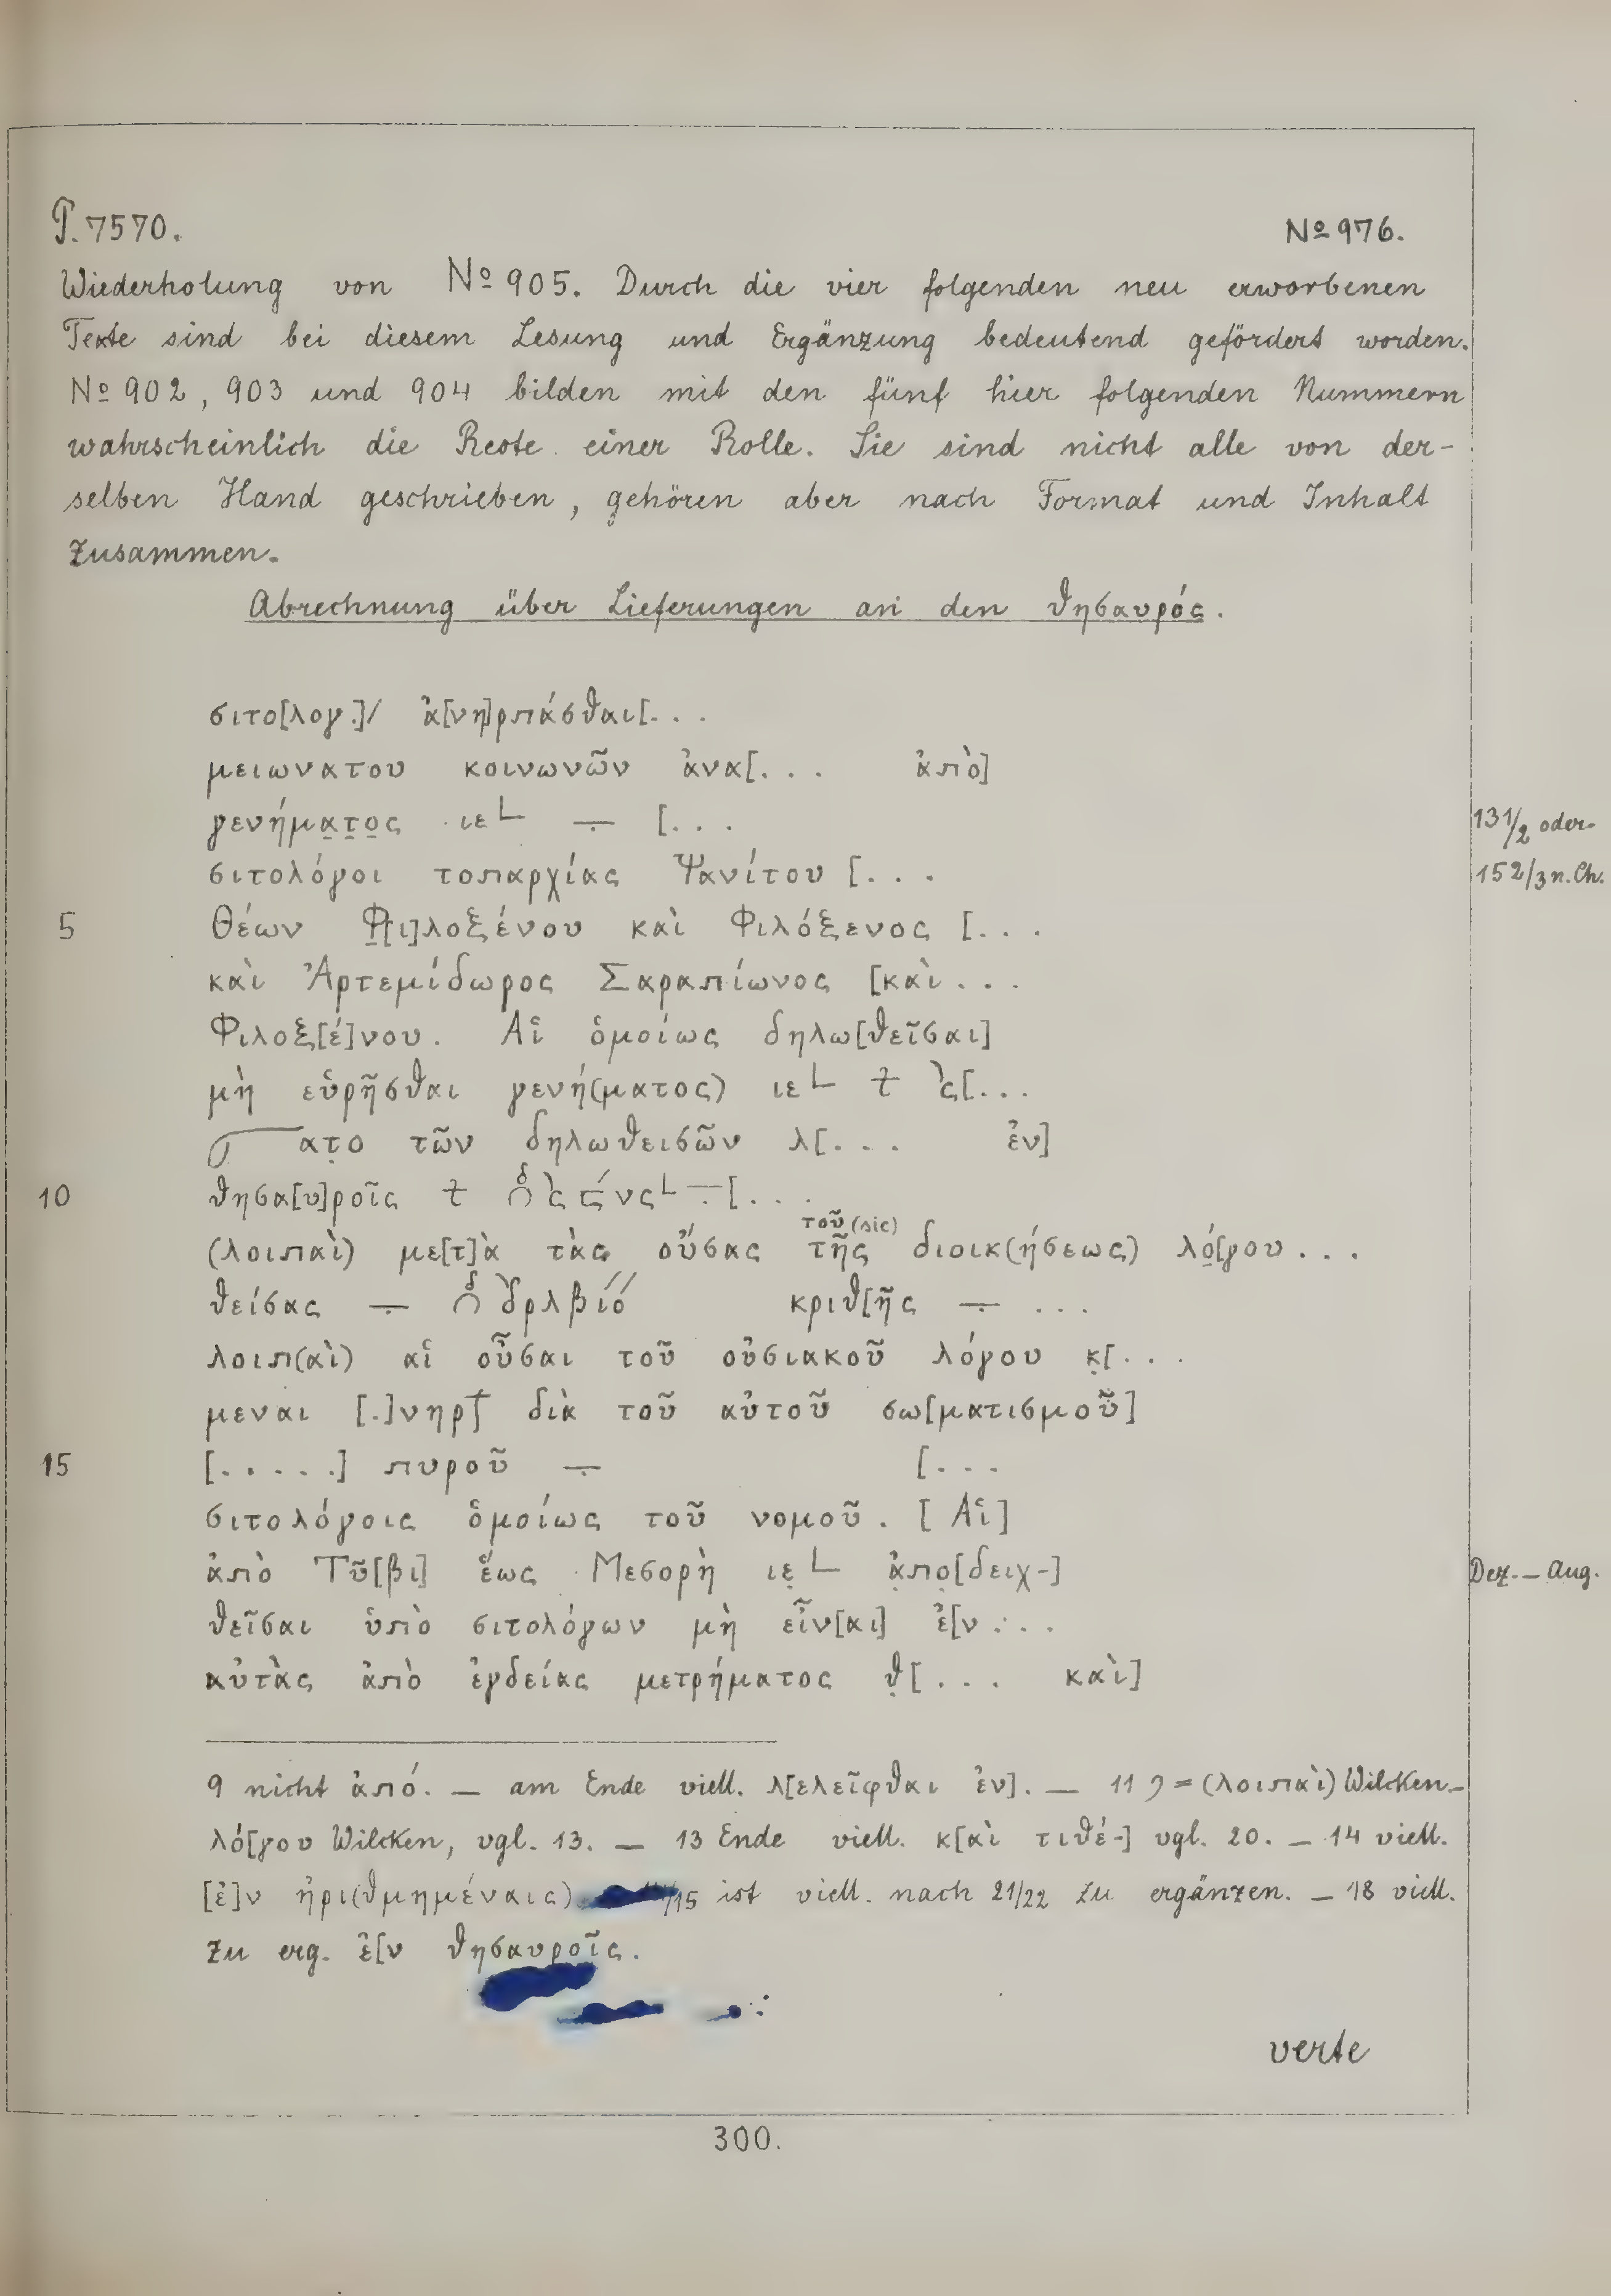 P. 7570.
No 976.
Wiederholung von No 905. Durch die vier folgenden neu erworbenen
Texte sind bei diesem Lesung und Ergänzung bedeutend gefördert worden.
No 902, 903 und 904 bilden mit den fünf hier folgenden Nummern
wahrscheinlich die Reste einer Rolle. Sie sind nicht alle von der-
selben Hand geschrieben, gehören aber nach Format und Inhalt
zusammen.
Abrechnung über Lieferungen an den θησαυρός.
σιτο[λογ.]/ ἀ[νη]ρπάσθαι[...
μειωνατου κοινωνῶν ἀνα[... ἀπὸ]
γενήμα̣τ̣ο̣ς ιε L ÷ [...
13 1/2 oder
σιτολόγοι τοπαρχίας Ψανίτου [...
152/3 n. Ch.
5 Θέων Φ̣[ι]λοξένου καὶ Φιλόξενος [...
καὶ Ἀρτεμίδωρος Σαραπίωνος [καὶ...
Φιλοξ[έ]νου. Αἱ ὁμοίως δηλω[θεῖσαι]
μὴ εὑρῆσθαι γενή(ματος) ιε L
ατ̣ο τῶν δηλωθεισῶν λ[... ἐν]
10 θησα[υ]ροῖς
τοῦ (sic)
(λοιπαὶ) με[τ]ὰ τὰς οὔσας τῆς διοικ(ήσεως) λό̣[γου...
θείσας ÷ κριθ[ῆς ÷ ...
λοιπ(αὶ) αἱ οὖσαι τοῦ οὐσιακοῦ λόγου κ̣[...
μεναι [.]νηρ διὰ τοῦ αὐτοῦ σω[ματισμοῦ]
15 [.....] πυροῦ ÷ [...
σιτολόγοις ὁμοίως τοῦ νομοῦ. [Αἱ]
ἀπὸ Τῦ[βι] ἕως Μεσορὴ ιε̣ L ἀ̣πο̣[δειχ-]
Dez. – Aug.
θεῖσαι ὑπὸ σιτολόγων μὴ εἶν[αι] ἐ[ν...
αὐτὰς ἀπὸ ἐγδείας μετρήματος θ̣[... καὶ]
9 nicht ἀπό. — am Ende viell. λ[ελεῖφθαι ἐν]. — 11 ϡ = (λοιπαὶ) Wilcken_
λό[γου Wilcken, vgl. 13. — 13 Ende viell. κ[αὶ τιθέ-] vgl. 20. — 14 viell.
[ἐ]ν ἠρι(θμημέναις) /15 ist viell. nach 21/22 zu ergänzen. — 18 viell.
zu erg. ἐ[ν θησαυροῖς.
verte
300.